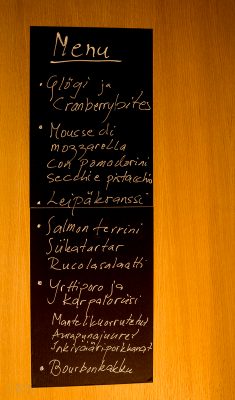 Menu
• Glögi ja
Cranberrybites
• Mousse di
mozzarella
con pomodorini
secchi e pistacchio
• Leipäkranssi
• Salmon terrini
Siikatartar
Rucolasalaatti
• Yrttiporo ja
karpaloriisi
Mantelikuorrutetut
Inkivääriporkkanat
• Bourbonkakku